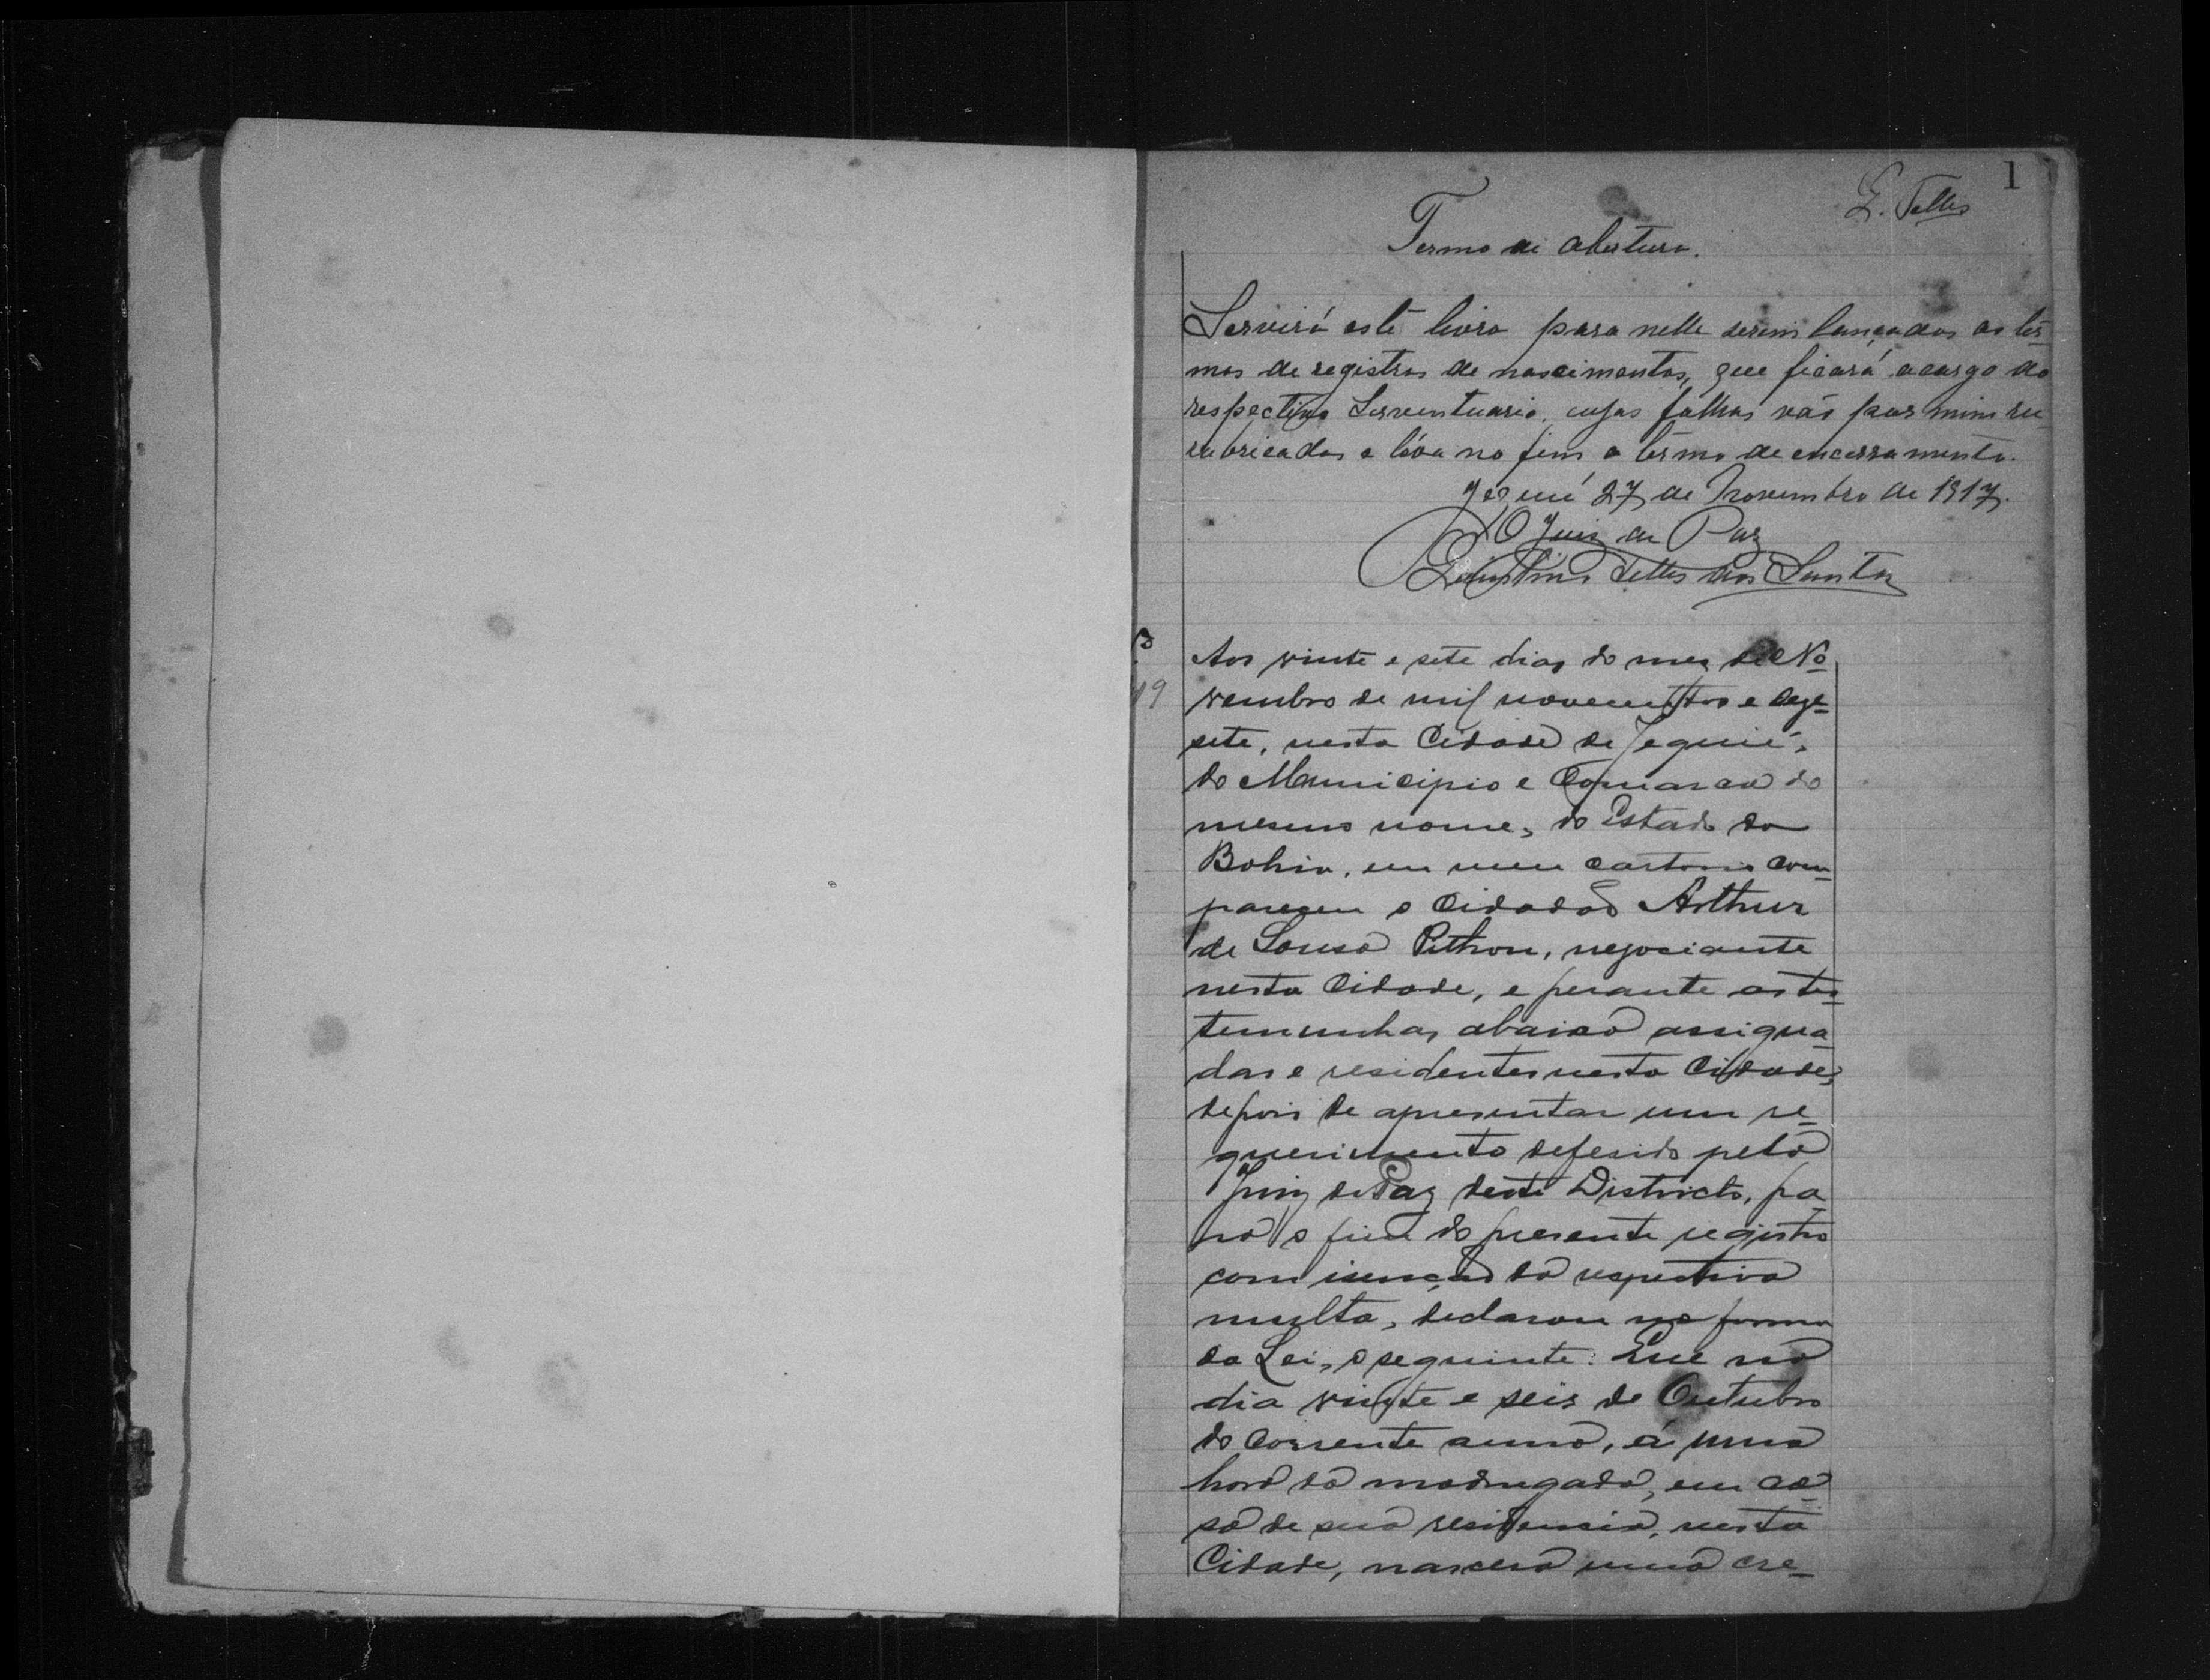 1
Telles
Termo de Abertura.
Servirá este livro para nelle serem lançados os ter-
mos de registros de nascimentos, que ficará a cargo do
respectivo Serventuario, cujas folhas vão por mim ru-
rubricadas e léva no fim o termo de encerramento.
Jequié 27 de Novembro de 1917.
O Juiz de Paz
Telles dos Santos
19
Aos vinte e sete dias do mez de No-
vembro de mil novecentos e deze-
sete, nesta Cidade de Jequié,
do Municipio e Comarca do
mesmo nome, do Estado da
Bahia, em meu cartorio com-
pareceu o Cidadão Arthur
de Sousa Pithon, negociante
nesta Cidade, e perante as tes-
temunhas abaixo assigna-
das e residentes nesta Cidade,
depois de apresentar um re-
querimento deferido pelo
Juiz de Paz deste Districto, pa-
ra o fim do presente registro
com isenção da respectiva
multa, declarou na forma
da Lei, o seguinte: Que no
dia vinte e seis de Outubro
do corrente anno, á uma
hora da madrugada, em ca-
sa de sua residencia, nesta
Cidade, nascera uma cre-